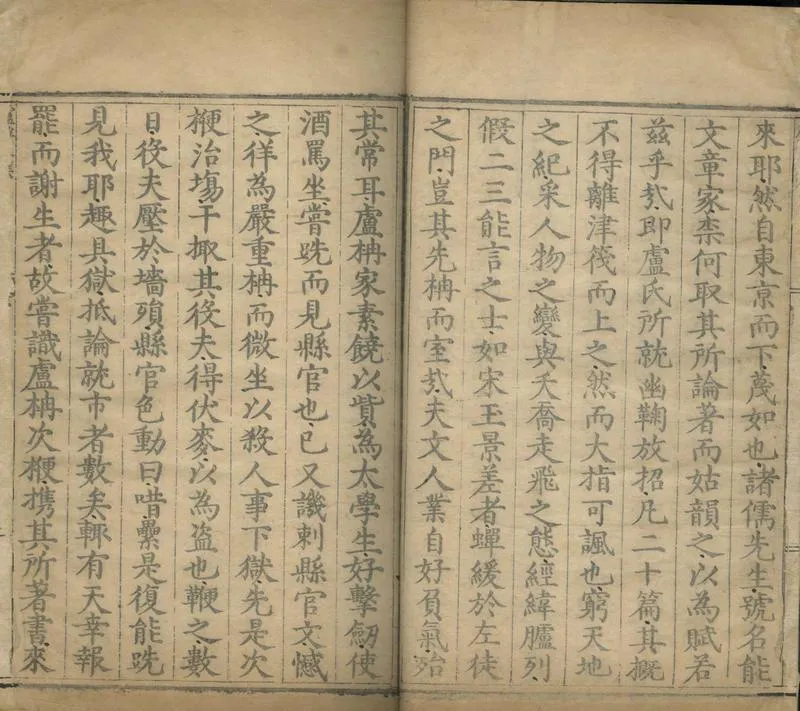 來耶然自東京而下蔑如也諸儒先生號名能
文章家柰何取其所論著而姑韻之以為賦若
茲乎㢤即盧氏所就幽鞠放招凡二十篇其概
不得離津筏而上之然而大指可諷也窮天地
之紀采人物之變與夭喬走飛之態經緯臚列
假二三能言之士如宋玉景差者蟬緩於左徒
之門豈其先柟而室㢤夫文人業自好負氣殆
其常耳盧柟家素饒以貲為太學生好擊劒使
酒罵坐嘗跣而見縣官也已又譏刺縣官文憾
之徉為嚴重柟而微坐以殺人事下獄先是次
楩治塲干掫其役夫得伏麥以為盜也鞭之數
日役夫壓於墻頽縣官色動曰唶纍是復能跣
見我耶趣具獄抵論就市者數矣輒有天幸報
罷而謝生者故嘗識盧柟次楩攜其所著書來